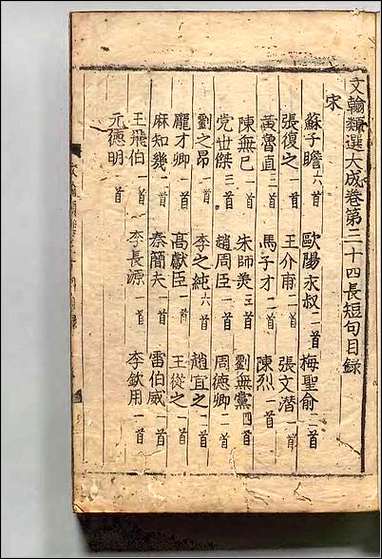 文翰類選大成卷第三十四長短句目錄
宋
蘇子瞻六首 歐陽永叔二首 梅聖俞二首
張復之一首 王介甫二首 張文潛一首
黃魯直三首 馬子才二首 陳烈一首
陳無已一首 朱師羙三首 劉無黨四首
党世傑二首 趙周臣一首 周德卿一首
劉之昂一首 李之純六首 趙宜之一首
龐才卿一首 高獻臣一首 王從之一首
麻知幾一首 秦簡夫一首 雷伯威一首
王飛伯一首 李長源一首 李欽用一首
元德明一首